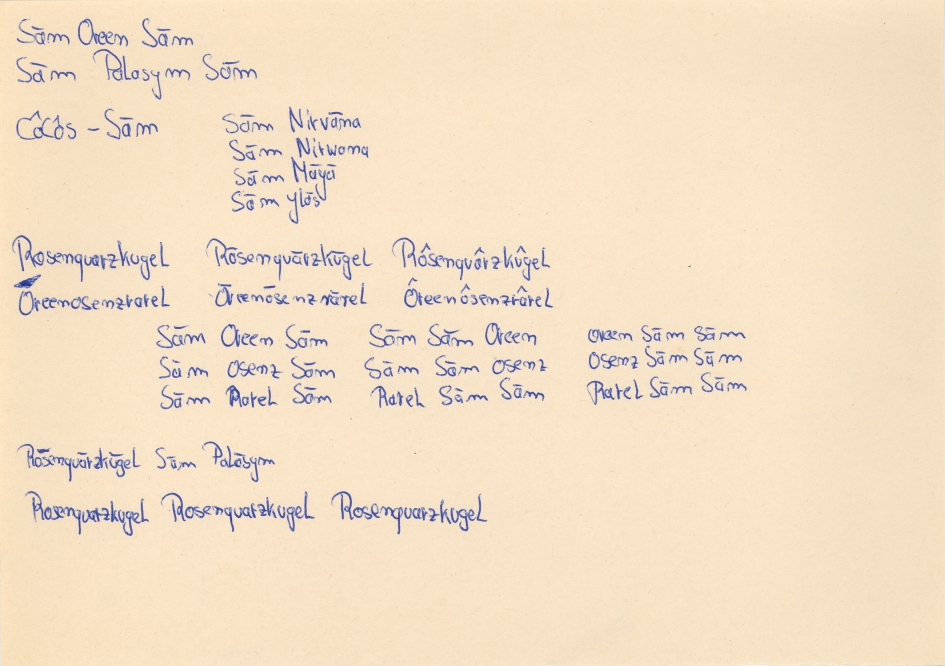 Sām Oreen Sām
Sām Palasym Sām
CôCôs - Sām Sām Nirvāna
Sām Nirwana
Sām Māyā
Sām ylās
Rosenquarzkugel Rōsenquārzkūgel Rôsenquârzkûgel
Oreenosenzrarel Ōreenōsenzrārel Ôreenôsenzrârel
Sām Oreen Sām Sām Sām Oreen oreen Sām Sām
Sām osenz Sām Sām Sām osenz osenz Sām Sām
Sām Rarel Sām Rarel Sām Sām Rarel Sām Sām
Rōsenquārzkūgel Sām Palāsym
Rosenquarzkugel Rosenquarzkugel Rosenquarzkugel